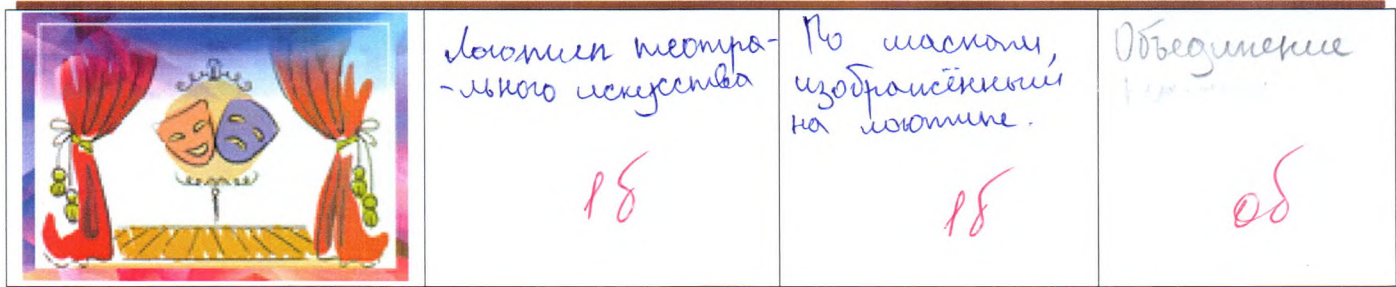 Логотип театра-
-льного искусства
1б
По маскам,
изображённый
на логотипе.
1б
Объединение
0б